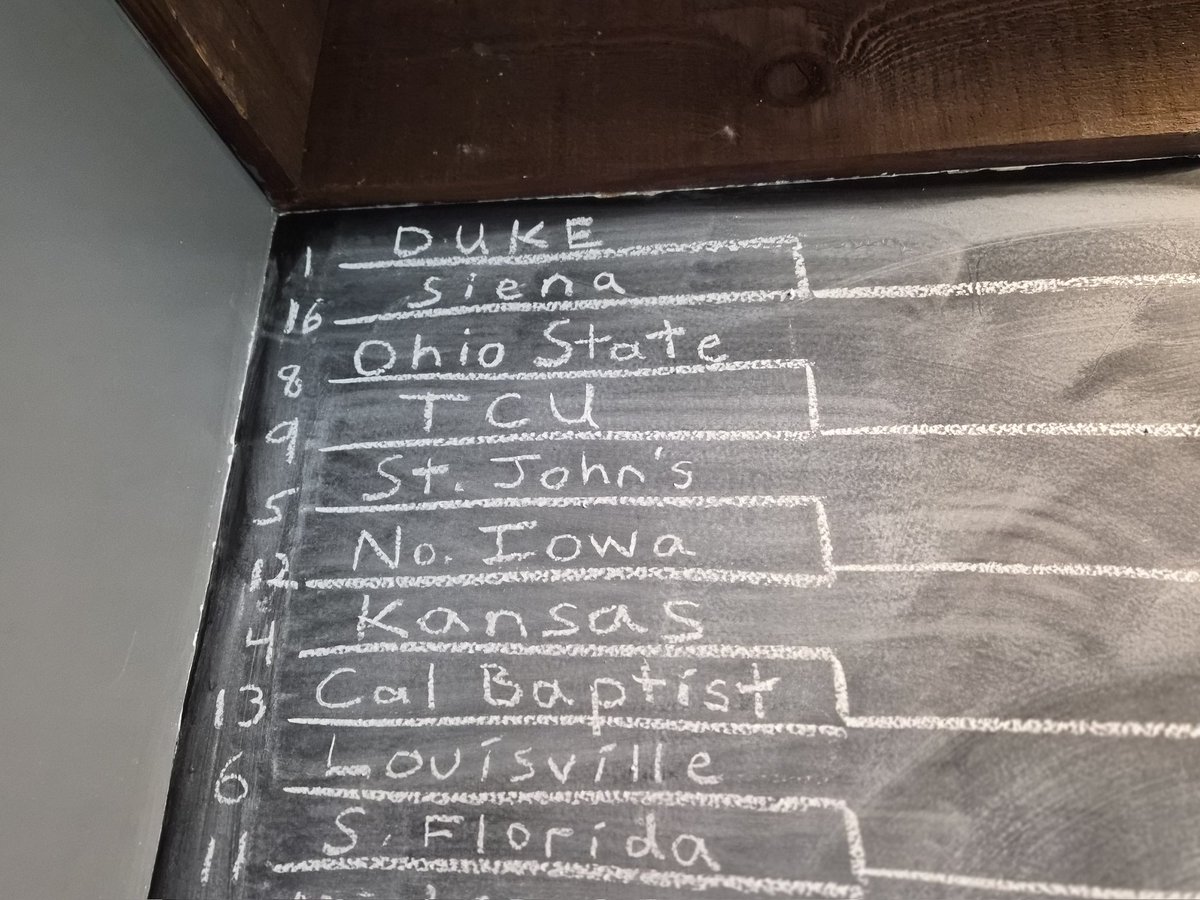 1 DUKE
16 siena
8 Ohio State
9 TCU
5 St. John's
12 No. Iowa
4 Kansas
13 Cal Baptist
6 Louisville
11 S. Florida